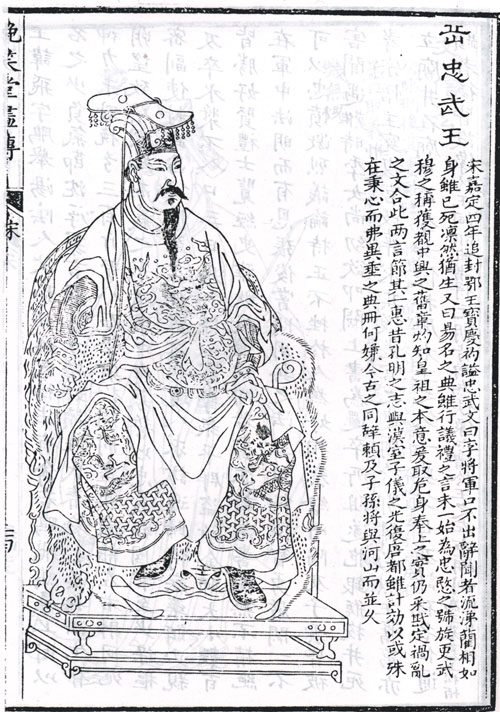 岳忠武王
宋嘉定四年追封鄂王寶慶初謚忠武文曰李將軍口不出辭聞者流涕藺相如
身雖已死凜然猶生又曰易名之典雖行議禮之言未一始為忠愍之號旋更武
穆之稱獲覩中興之舊章灼知皇祖之本意爰取危身奉上之實仍采戡定禍亂
之文合此两言節其一惠昔孔明之志興漢室子儀之光復唐都雖計効以或殊
在秉心而弗異垂之典冊何嫌今古之同辭賴及子孫將與河山而並久
晚笑堂畫傳